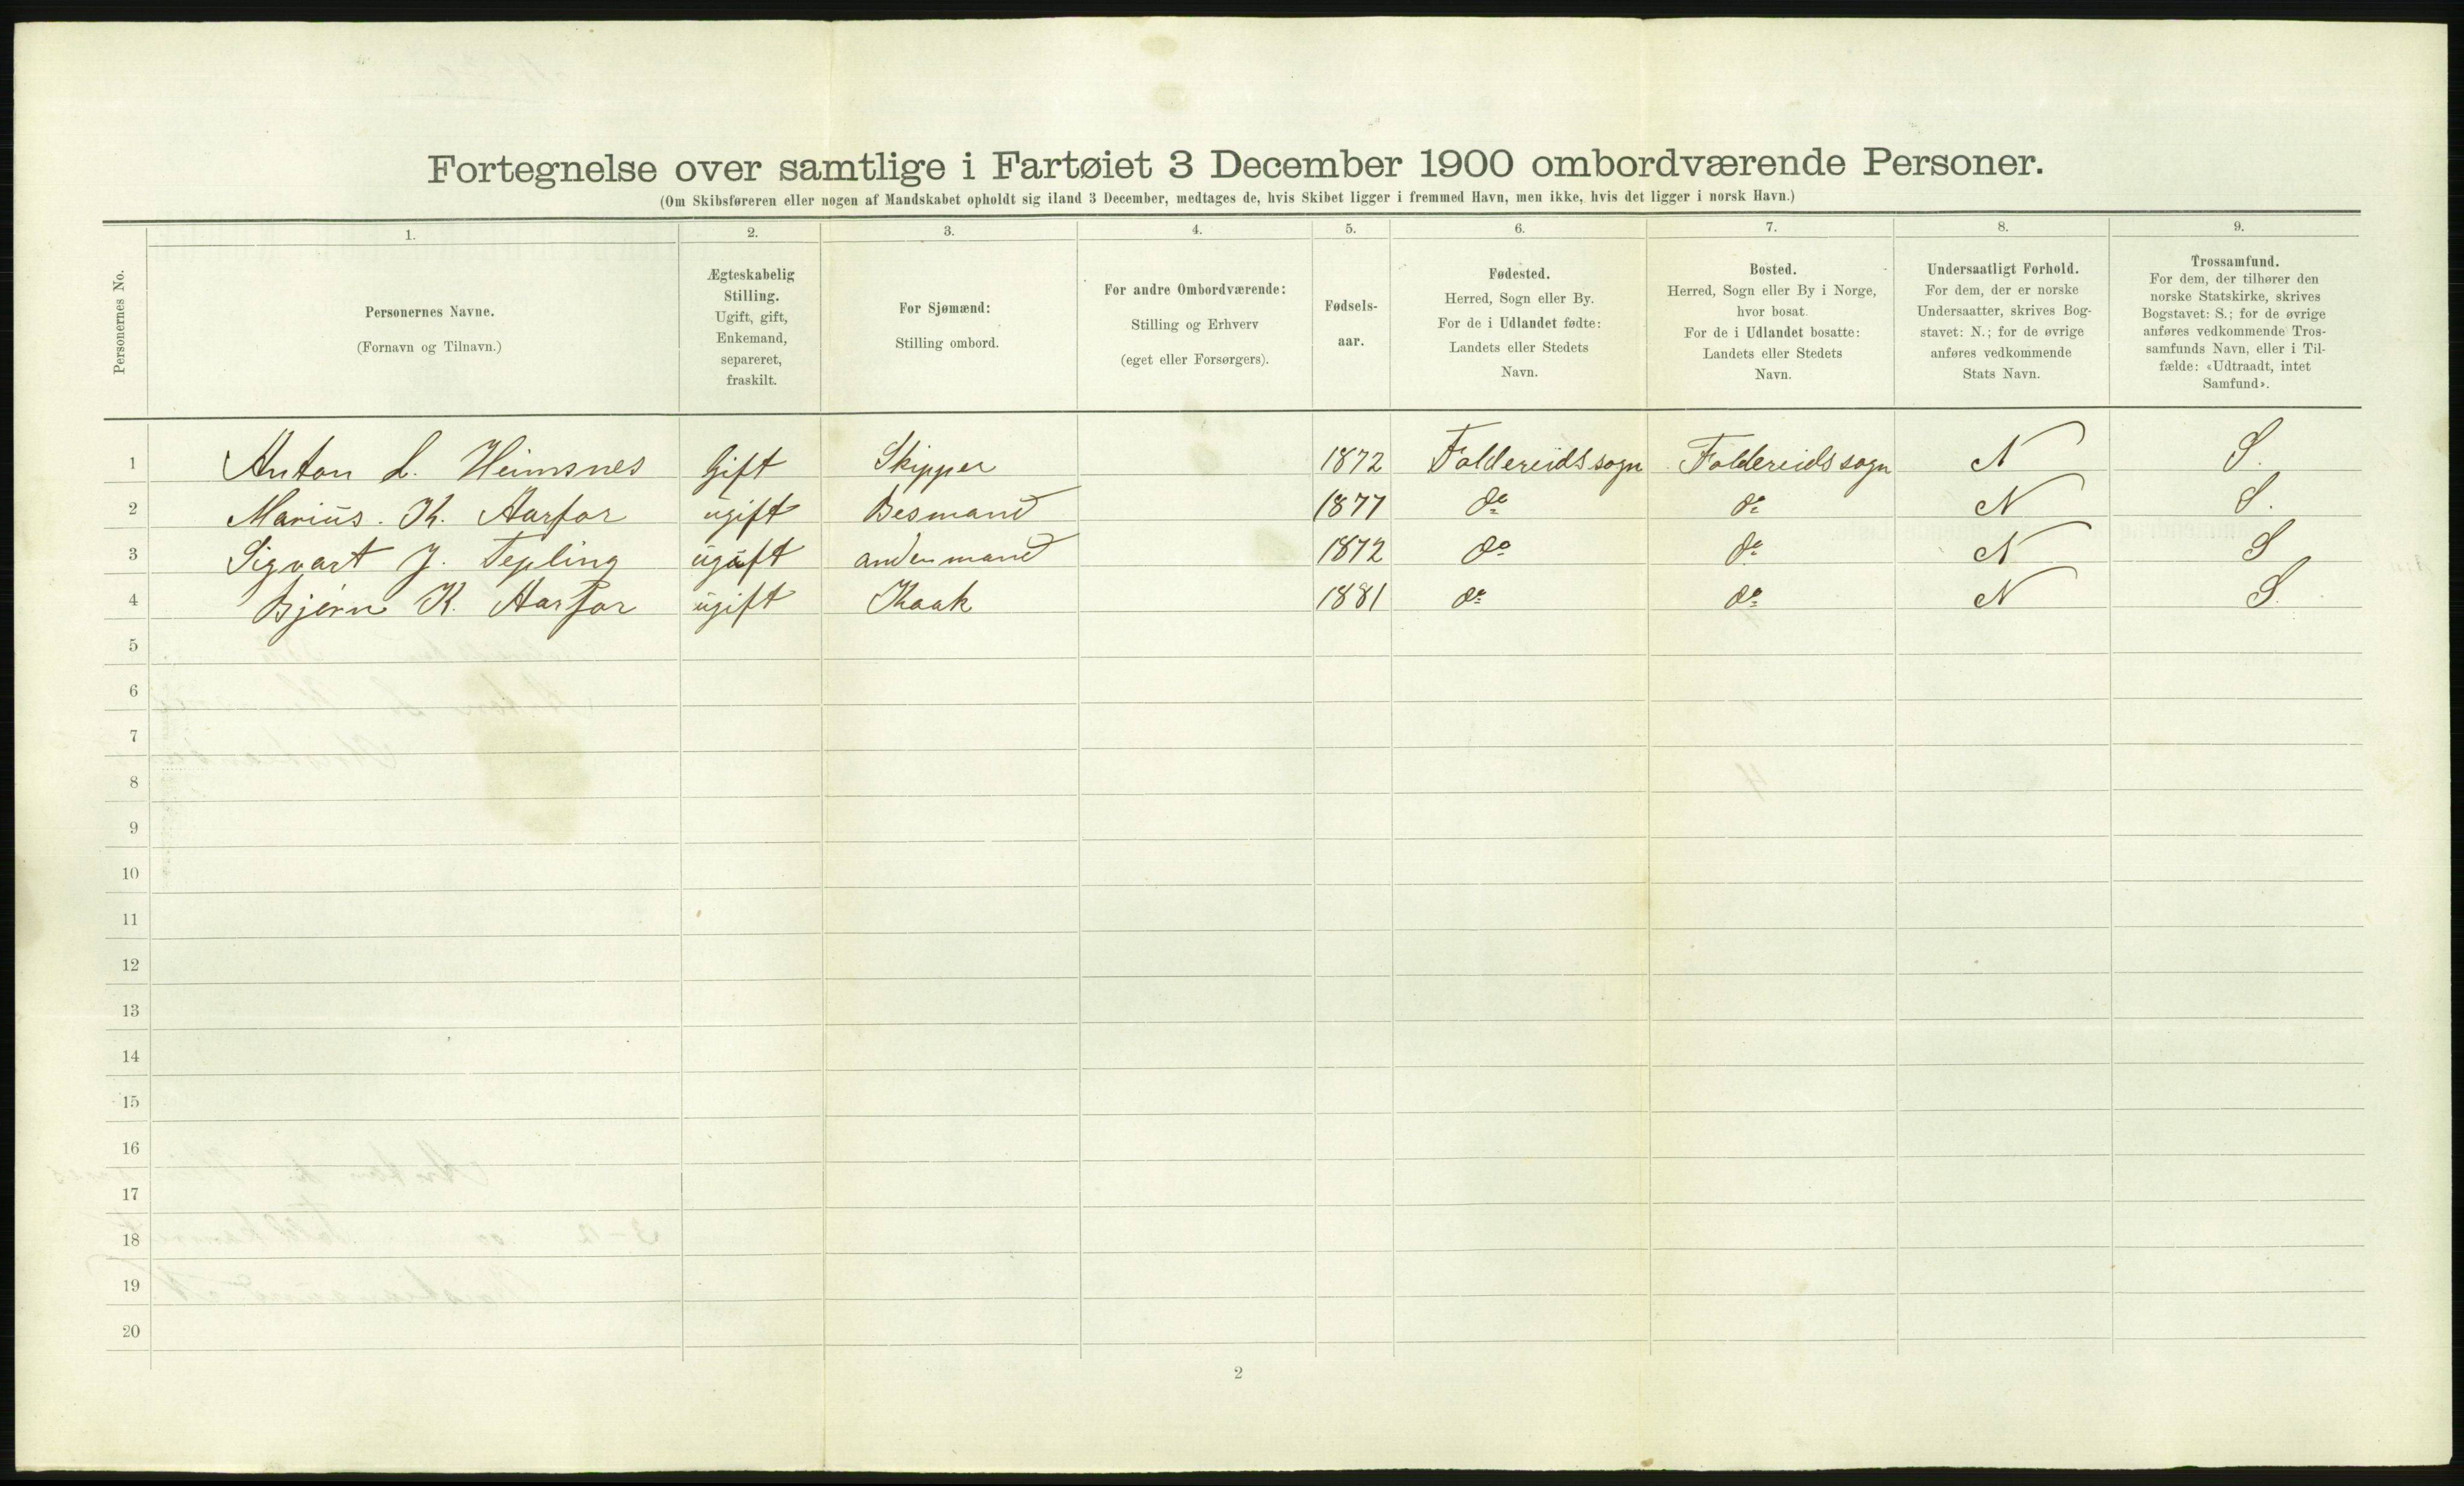 Fortegnelse over samtlige i Fartøiet 3 December 1900 ombordværende Personer.
(Om Skibsføreren eller nogen af Mandskabet opholdt sig iland 3 December, medtages de, hvis Skibet ligger i fremmed Havn, men ikke, hvis det ligger i norsk Havn.)
Personernes No.
1. 2. 3. 4. 5. 6. 7. 8. 9.
Personernes Navne.
(Fornavn og Tilnavn.)
Ægteskabelig
Stilling.
Ugift, gift,
Enkemand,
separeret,
fraskilt.
For Sjømænd:
Stilling ombord.
For andre Ombordværende:
Stilling og Erhverv
(eget eller Forsørgers).
Fødsels-
aar.
Fødested.
Herred, Sogn eller By.
For de i Udlandet fødte:
Landets eller Stedets
Navn.
Bosted.
Herred, Sogn eller By i Norge,
hvor bosat.
For de i Udlandet bosatte:
Landets eller Stedets
Navn.
Undersaatligt Forhold.
For dem, der er norske
Undersaatter, skrives Bog-
stavet: N.; for de øvrige
anføres vedkommende
Stats Navn.
Trossamfund.
For dem, der tilhører den
norske Statskirke, skrives
Bogstavet: S.; for de øvrige
anføres vedkommende Tros-
samfunds Navn, eller i Til-
fælde: «Udtraadt, intet
Samfund».
1 Anton L. Heimsnes Gift Skipper 1872 Foldereids sogn Foldereids sogn N S.
2 Marius. K. Aarfor ugift Besmand 1877 do do N S.
3 Sigvart J. Tepling ugift andenmand 1872 do do N S
4 Bjørn K. Aarfor ugift Kaak 1881 do do N S.
5
6
7
8
9
10
11
12
13
14
15
16
17
18
19
20
2